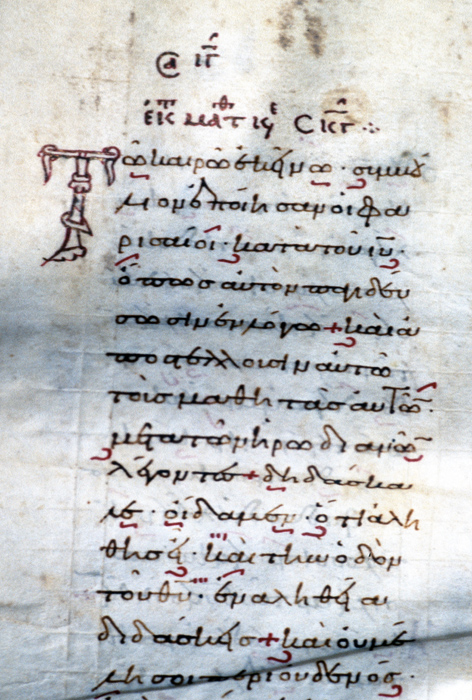 Τῶ καιρῶ ἐκείνω· συμβού
λιον ἐποίησαν οἱ φα
ρισαῖοι· κατὰ τοῦ ιυ̅·
ὅπως αὐτὸν παγιδεύ
σωσιν ἐν λόγω + καὶ ἀ
ποστέλλουσιν αὐτῶ
τοὺς μαθητὰς αὐτῶν·
μετὰ τῶν ἡρωδιανῶν
λέγοντες + διδάσκα
λε· οἴδαμεν· ὅτι ἀλη
θὴς εἶ· καὶ τὴν ὁδὸν
τοῦ θυ̅· ἐν ἀληθεία
διδάσκεις + καὶ οὐ μέ
λει σοι περὶ οὐδενός·